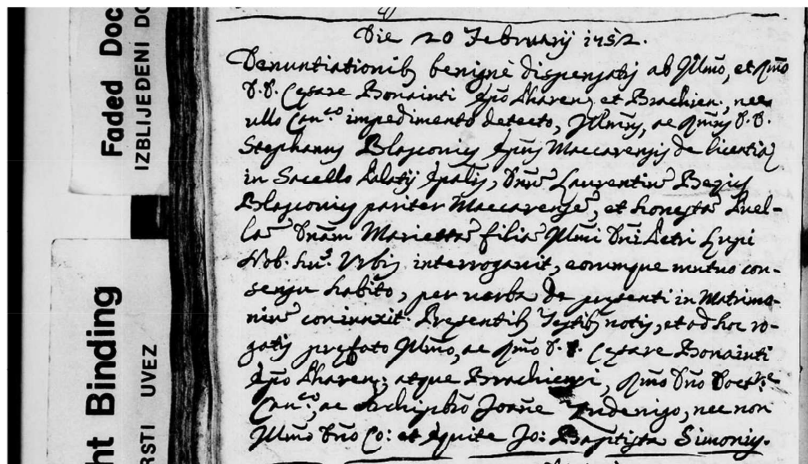 Faded Doc
IZBLIJEDENI DO
ht Binding
RSTI UVEZ
Die 20 Februarij 1752.
Denuntiationib9 benignè dispensatis ab Illmo, et Rmo
D. D. Cesare Bonainti Epo Pharen. et Brachien., nec
ullo Can.co impedimento detecto, Illmus, ac Rmus D. D.
Stephanus Blasconius Epus Maccarensis de licentia
in Sacello Palatij Epalis, Dnum Laurentium
Blasconium pariter Maccarensem, et honestam Puel-
lam Dnam Mariettam filiam Illmi Dni Petri Lupi
Nob. hu. Urbis interrogavit, eorumque mutuo con-
sensu habito, per verba de presenti in Matrimo-
nium coniunxit. Presentib9 Testib9 notis, et ad hoc ro-
gatis prefato Illmo, ac Rmo D. D. Cesare Bonainti
Epo Pharen: atque Brachiensi, Rmo Dno
Can.co, ac Archipbro Joañe Andenigo, nec non
Illmo Dno Co: et Equite Jo: Baptista Simonis.